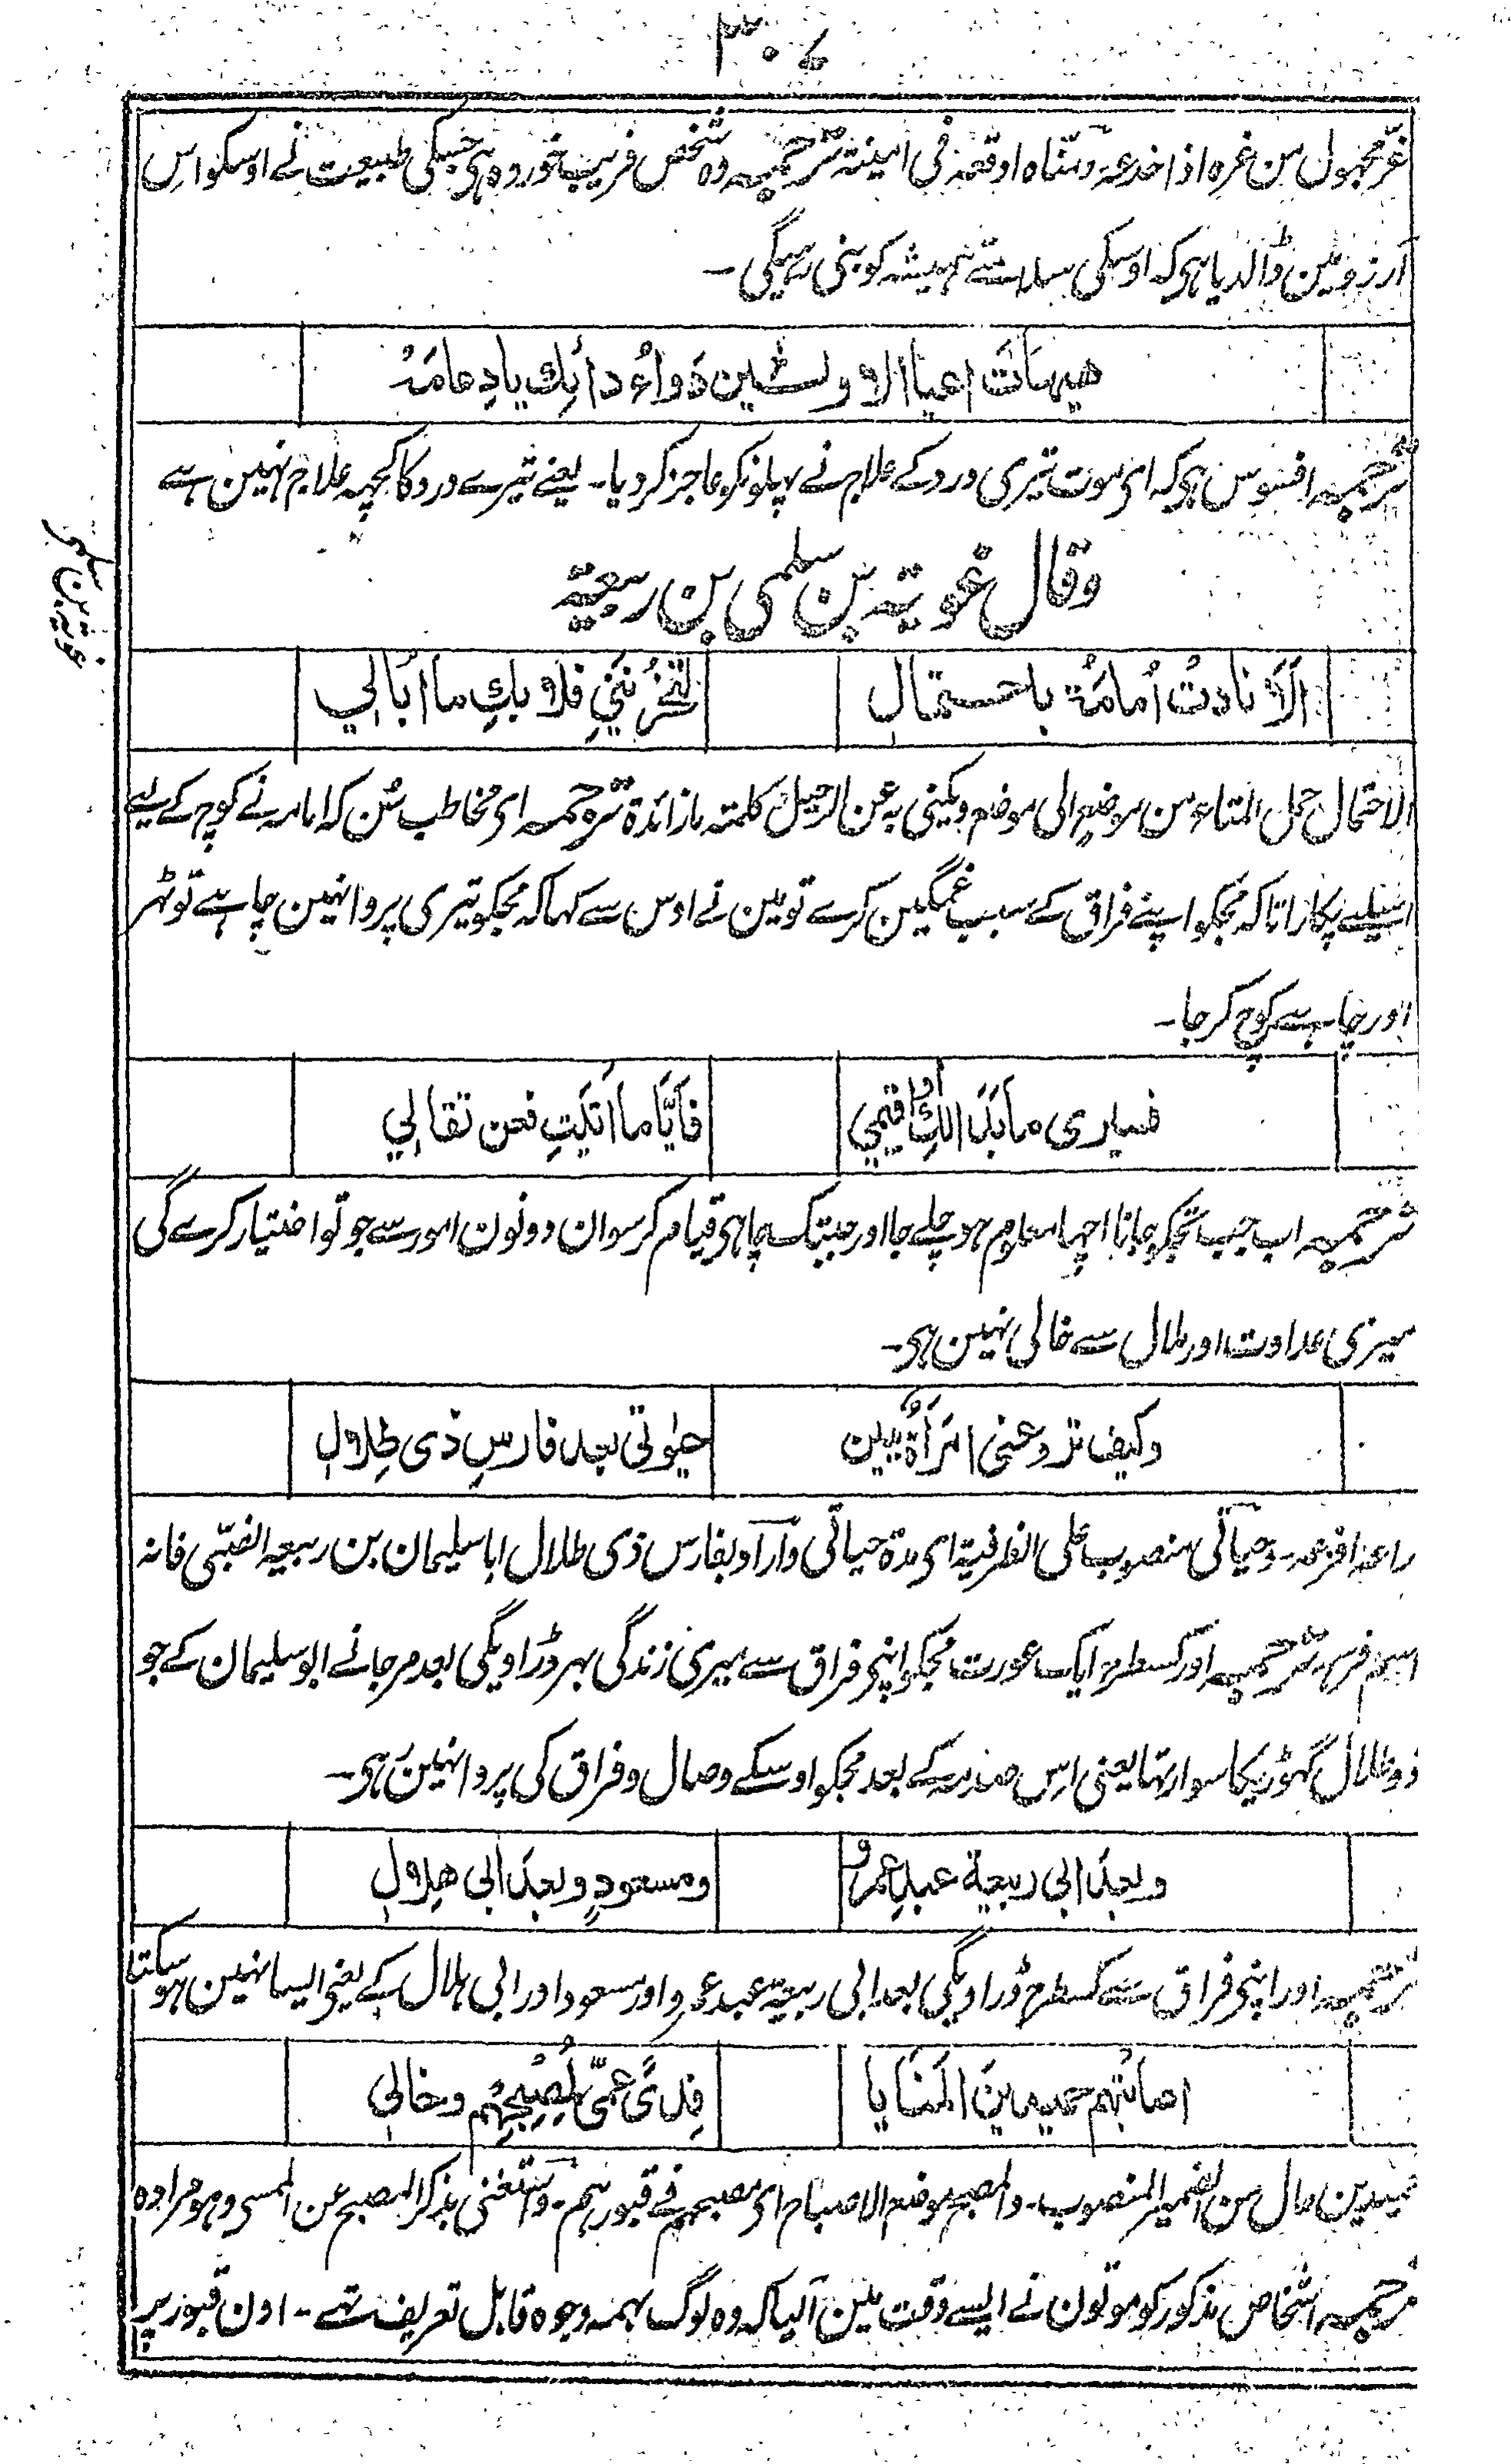 ۳۰۷
غرّ مجہول من غرہ اذا خدعہ ومنّاہ اوقعہ فی امنیتہ ترجمہ وہ شخص فریب خوردہ ہی جسکی طبیعت نے اوسکو اس
آرزو مین ڈالدیا ہی کہ اوسکی سلامتے ہمیشہ کو بنی رہیگی ۔
هيهات اعيا الاولين دَواءُ دائِك يادِعامَهْ
ترجمہ افسوس ہی کہ ای موت تیری درد کے علاج نے پہلونکو عاجز کر دیا ۔ یعنے تیرے درد کا کچہہ علاج نہین ہے
وقال غویۃ بن سلمی بن ربیعۃ
غویۃ بن سلمی
اَلَا نادتْ اُمامَةُ باحتمالِ	لتَحْزُنَنِي فلا بكِ ما اُبَالِي
الاحتمال حمل المتاع من موضع الی موضع ویکنی بہ عن الرحیل کلمتہ ما زائدۃ ترجمہ ای مخاطب سُن کہ امامہ نے کوچ کے لیے
اسیلیے پکارا تاکہ مجکو اپنے فراق کے سبب غمگین کرے تو مین نے اوس سے کہا کہ مجکو تیری پروا نہین چاہے تو ٹہر
اور چاہے کوچ کر جا ۔
فسيرى ما بَدَا لكِ او اقيمي	فاَيًّا ما اَتَيتِ فعن تقالي
ترجمہ اب جب تجکو جانا اچہا معلوم ہو چلے جا اور جبتک چاہی قیام کر سو ان دونون امور سے جو تو اختیار کرے گی
میری عداوت اور ملال سے خالی نہین ہی ۔
وكيف تروعنى امرَأةٌ ببين	حيٰوتي بعد فارسِ ذى طِلالِ
راعہ افزعہ ۔ وحیاتی منصوب علی الظرفیۃ ای مدۃ حیاتی واراد بفارس ذی طلال ابا سلیمان بن ربیعہ الضبّی فانہ
اسم فرسہ ترجمہ اور کسطرح ایک عورت مجکو اپنی فراق سے میری زندگی بہر ڈراویگی بعد مر جانے ابو سلیمان کے جو
ذو طلال گہوڑیکا سوار تہا یعنی اس صدمہ کے بعد مجکو اوسکے وصال و فراق کی پروا نہین ہی ۔
وبعدَ ابى ربيعة عبدِ عمرٍو	ومسعودٍ وبعدَ ابى هِلالِ
ترجمہ اور اپنی فراق سے کسطرح ڈراویگی بعد ابی ربیعۃ عبد عمرو اور مسعود اور ابی ہلال کے یعنی ایسا نہین ہو سکتا
اصابتهم حميدينَ المَنَايا	فِدًى عمّى لمُصْبَحِهُم وخالي
حمیدین حال من الضمیر المنصوب ۔ والمصبح موضع الاصباح ای مصبحہم فے قبورہم ۔ واستغنی بذکر المصبح عن الممسی وہو مرادہ
ترجمہ اشخاص مذکور کو موتون نے ایسے وقت مین آلیا کہ وہ لوگ بہمہ وجوہ قابل تعریف تہے ۔ اون قبور پر